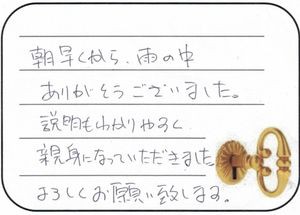 朝早くから、雨の中
ありがとうございました。
説明もわかりやすく
親身になっていただきました。
よろしくお願い致します。